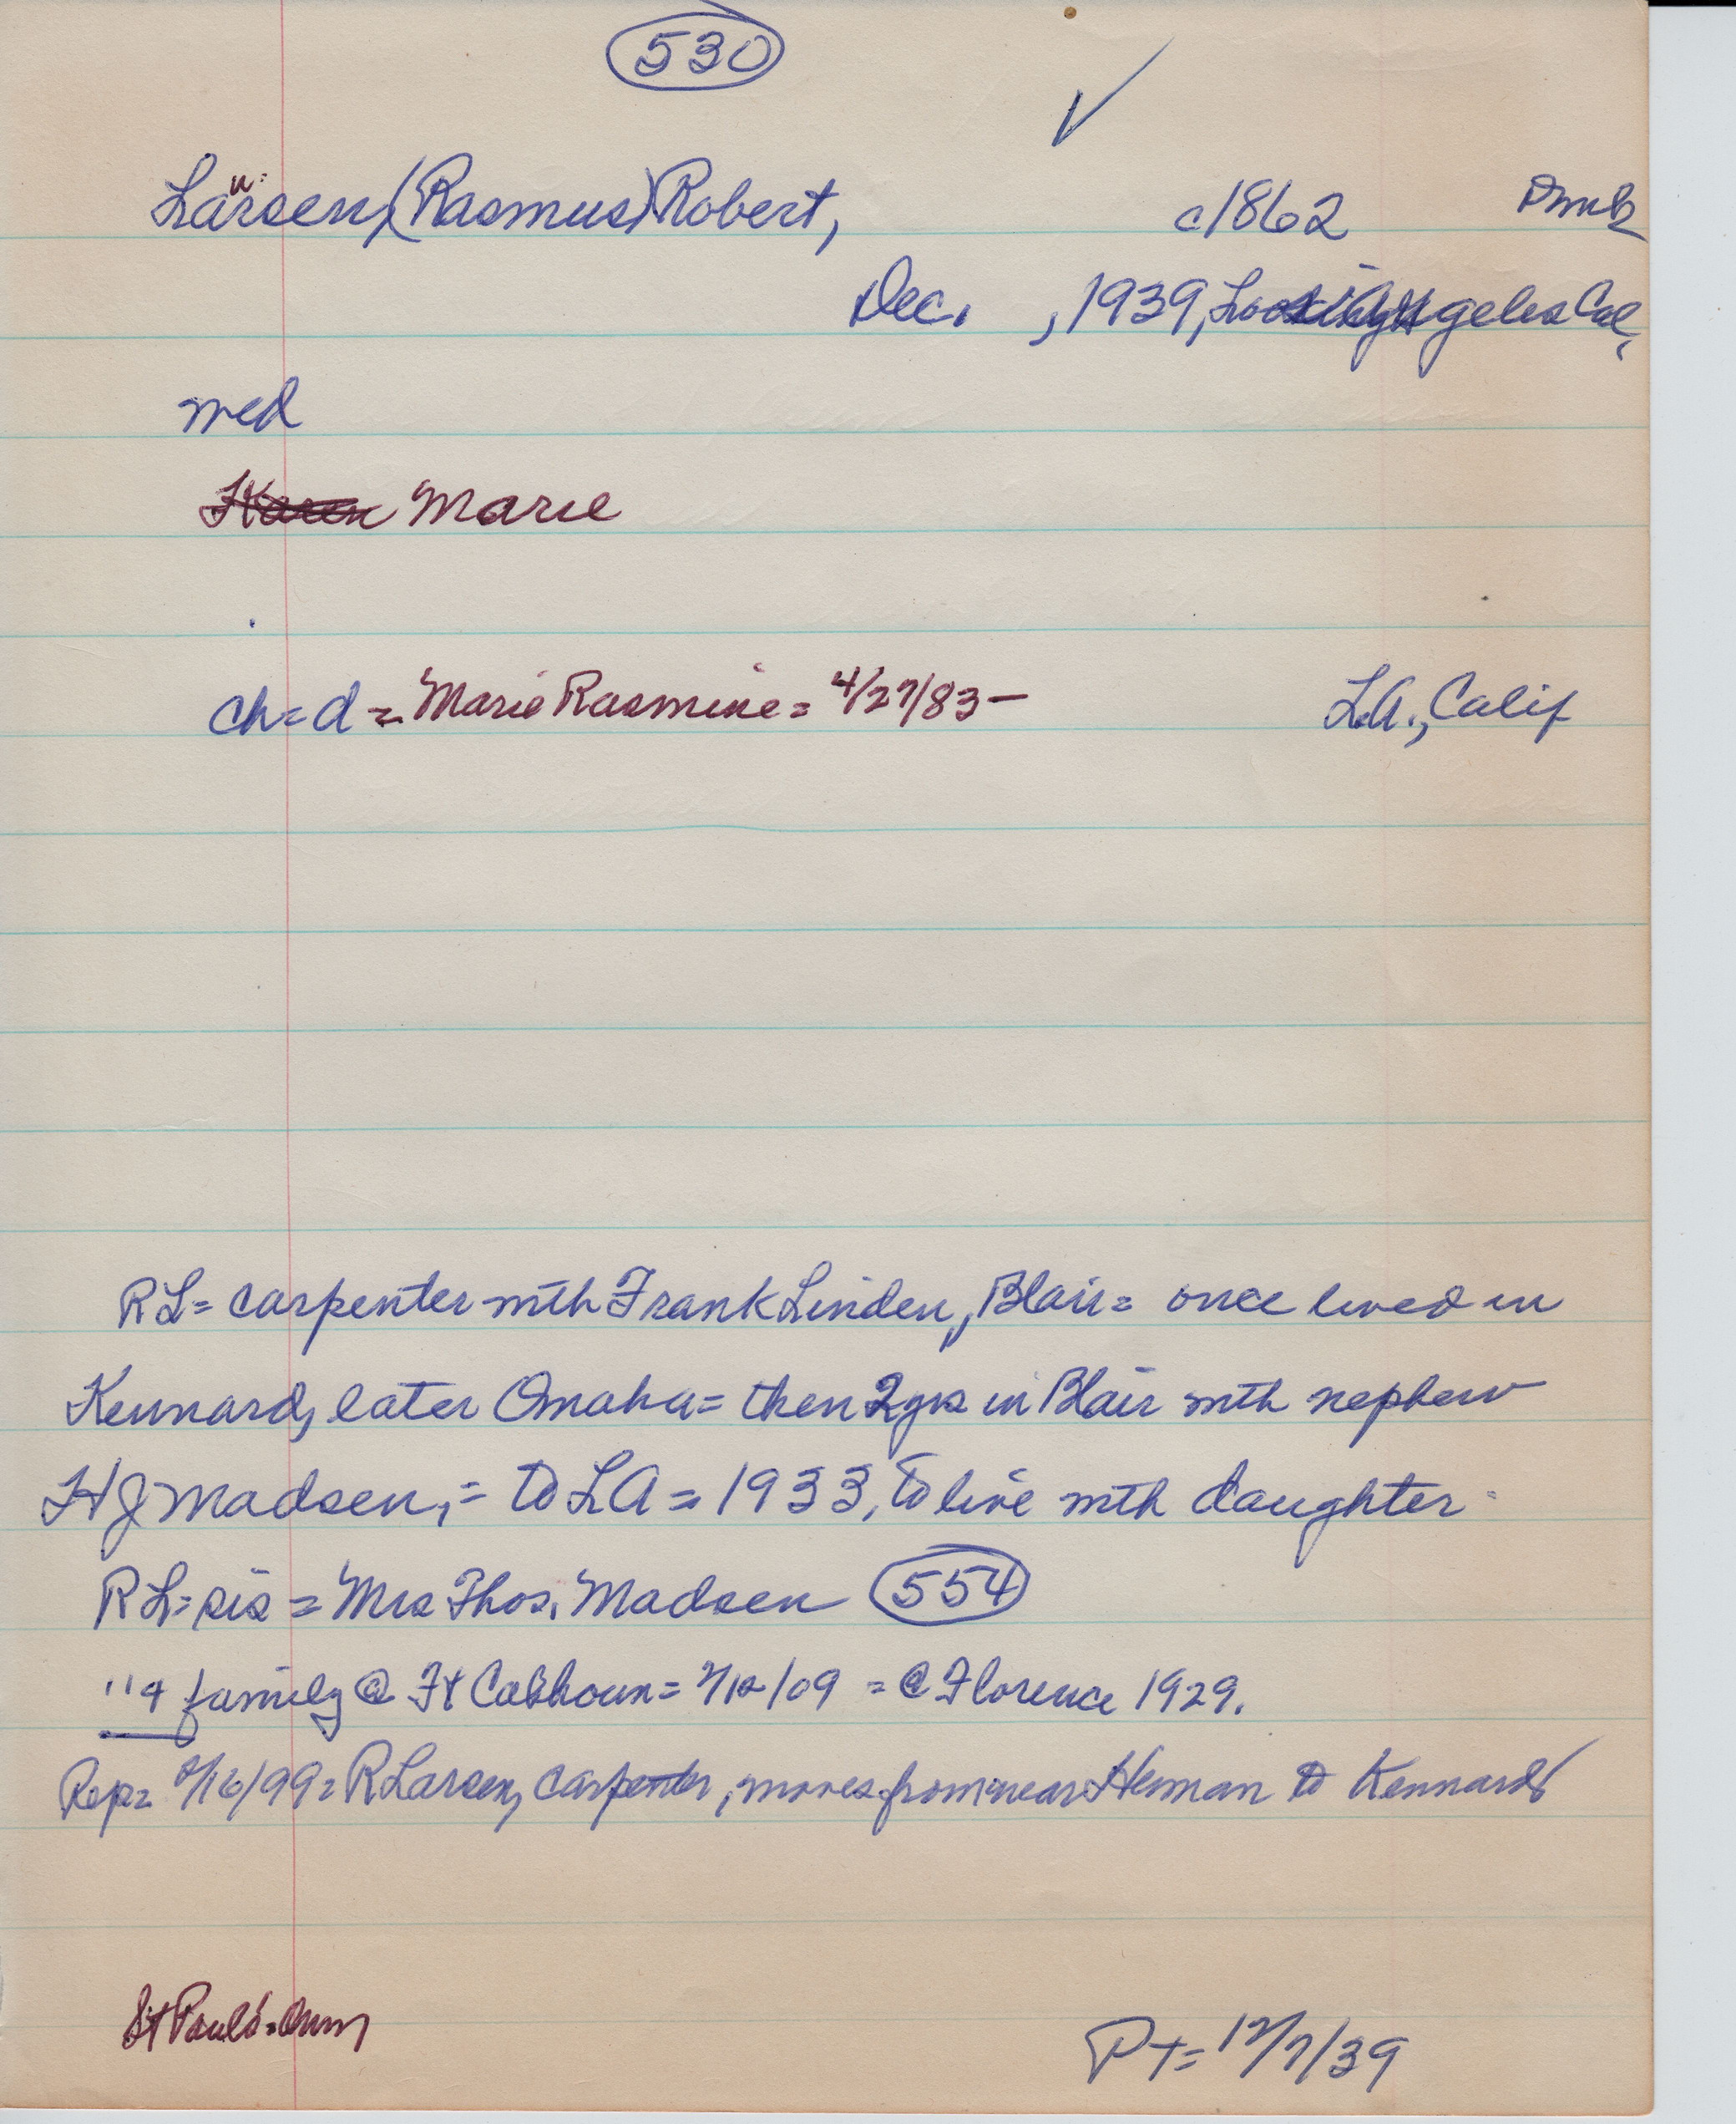 530
Larsen, (Rasmus) Robert, c1862 Dmk
Dec. , 1939, Los Angeles Cal,
med
Karen Marie
ch = d = Marie Rasmine = 4/27/83 — L.A., Calif
RL = carpenter with Frank Linden, Blair = once lived in
Kennard, later Omaha = then 2 yrs in Blair with nephew
H J Madsen, = to LA = 1933, to live with daughter
RL = sis = Mrs Thos. Madsen 554
" & family @ Ft Calhoun = 7/12/09 = @ Florence 1929.
Rep = /16/99 = R Larsen, carpenter, moves from near Herman to Kennard
St Paul's =
PT = 12/7/39